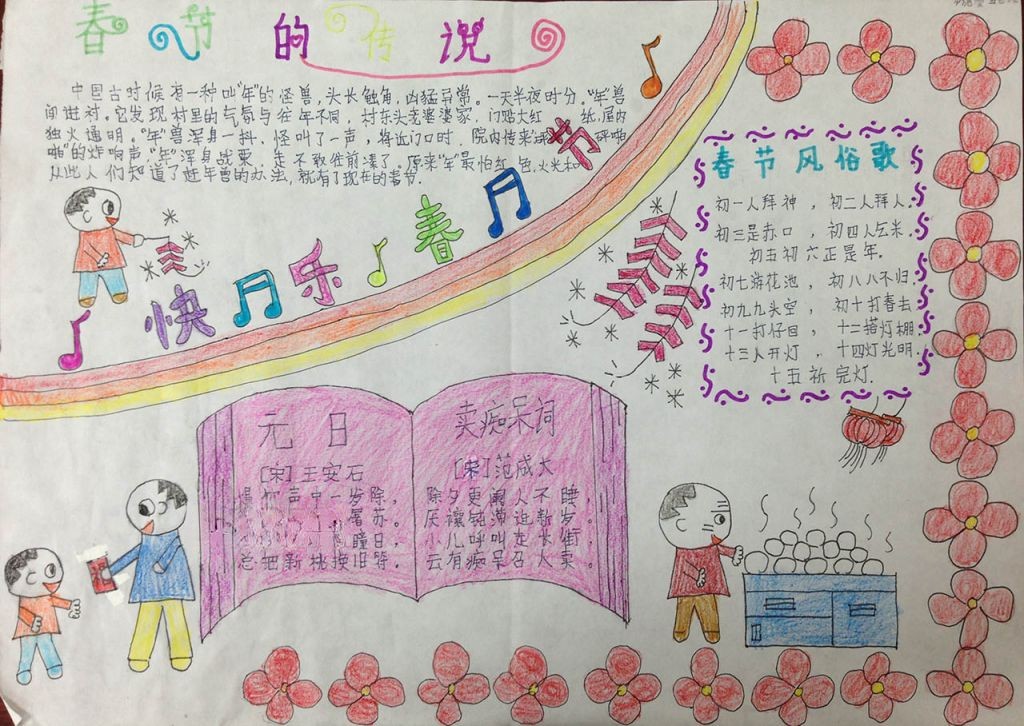 春节的传说
中国古时候有一种叫"年"的怪兽,头长触角,凶猛异常。一天半夜时分,"年"兽
闯进村。它发现村里的气氛与往年不同,村东头老婆婆家,门贴大红 纸,屋内
烛火通明。"年"兽浑身一抖,怪叫了一声,将近门口时,院内传来 砰啪
啪"的炸响声,"年"浑身战栗,走不敢往前凑了。原来"年"最怕红色,火光和
从此人们知道了赶年兽的办法,就有了现在的春节.
快乐春节
春节风俗歌
初一人拜神,初二人拜人.
初三是赤口,初四人乞米.
初五初六正是年.
初七游花池,初八八不归.
初九九头空,初十打春去
十一打仔回,十二搭灯棚.
十三人开灯,十四灯光明.
十五祈完灯.
元日
[宋]王安石
爆 声中一岁除,
屠苏。
曈日,
总把新桃换旧符。
卖痴呆词
[宋]范成大
除夕更阑人不睡,
厌禳钝滞迎新岁。
小儿呼叫走长街,
云有痴呆召人卖。